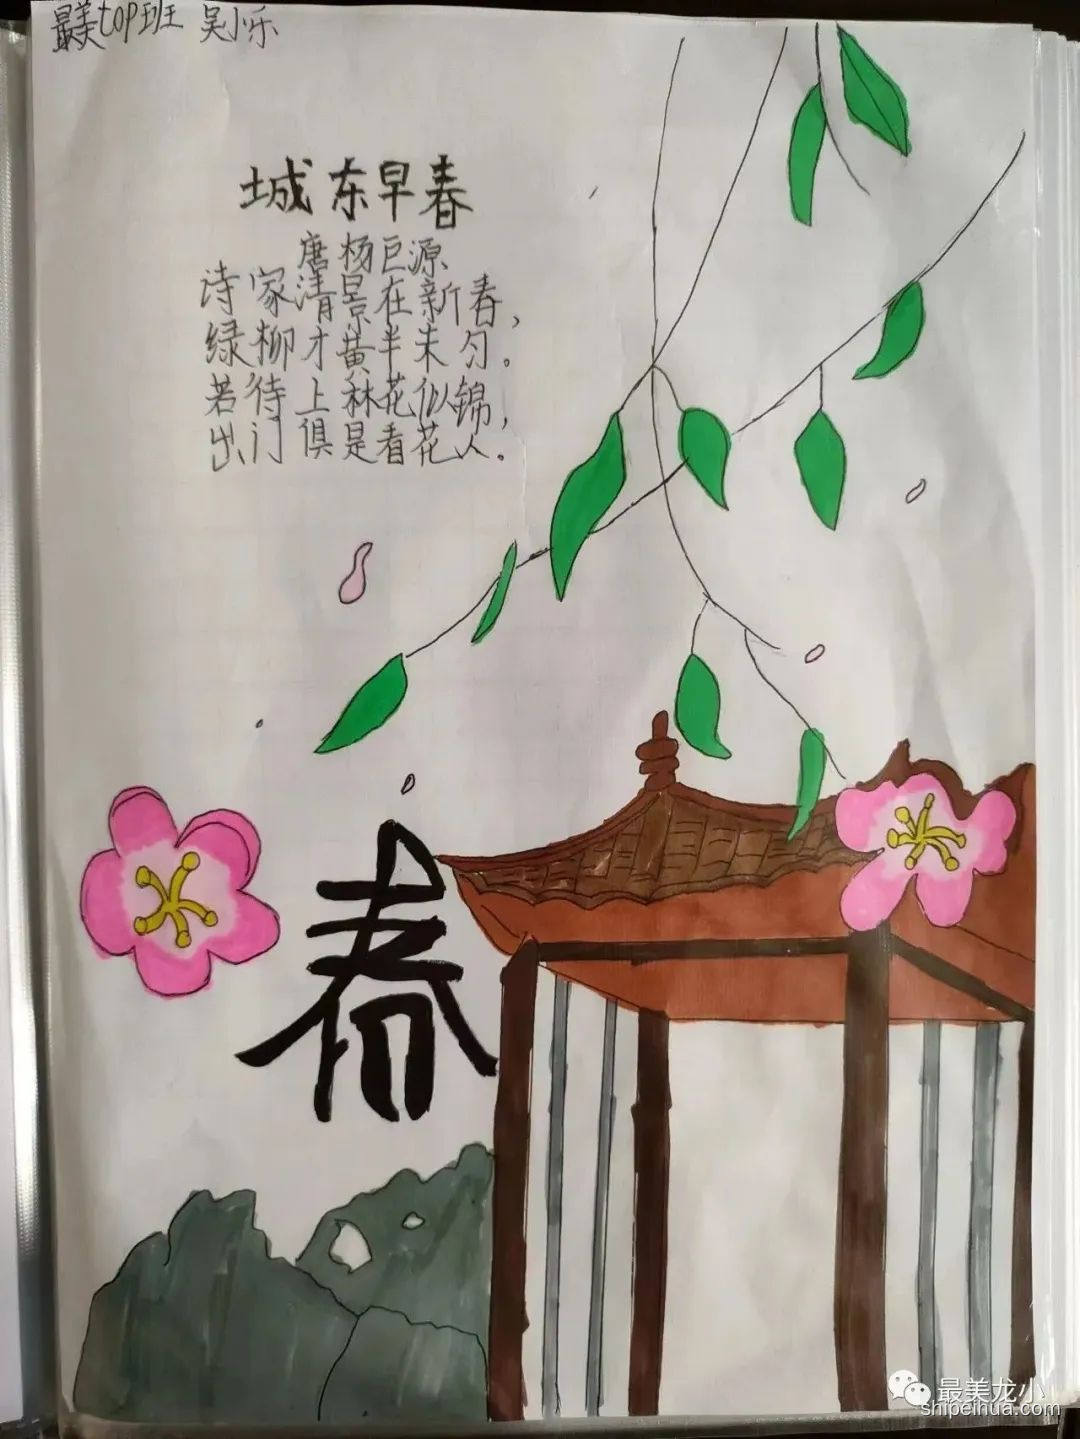 最美top班 吴小乐
城东早春
唐 杨巨源
诗家清景在新春，
绿柳才黄半未匀。
若待上林花似锦，
出门俱是看花人。
春
最美龙小
shipeihua.com